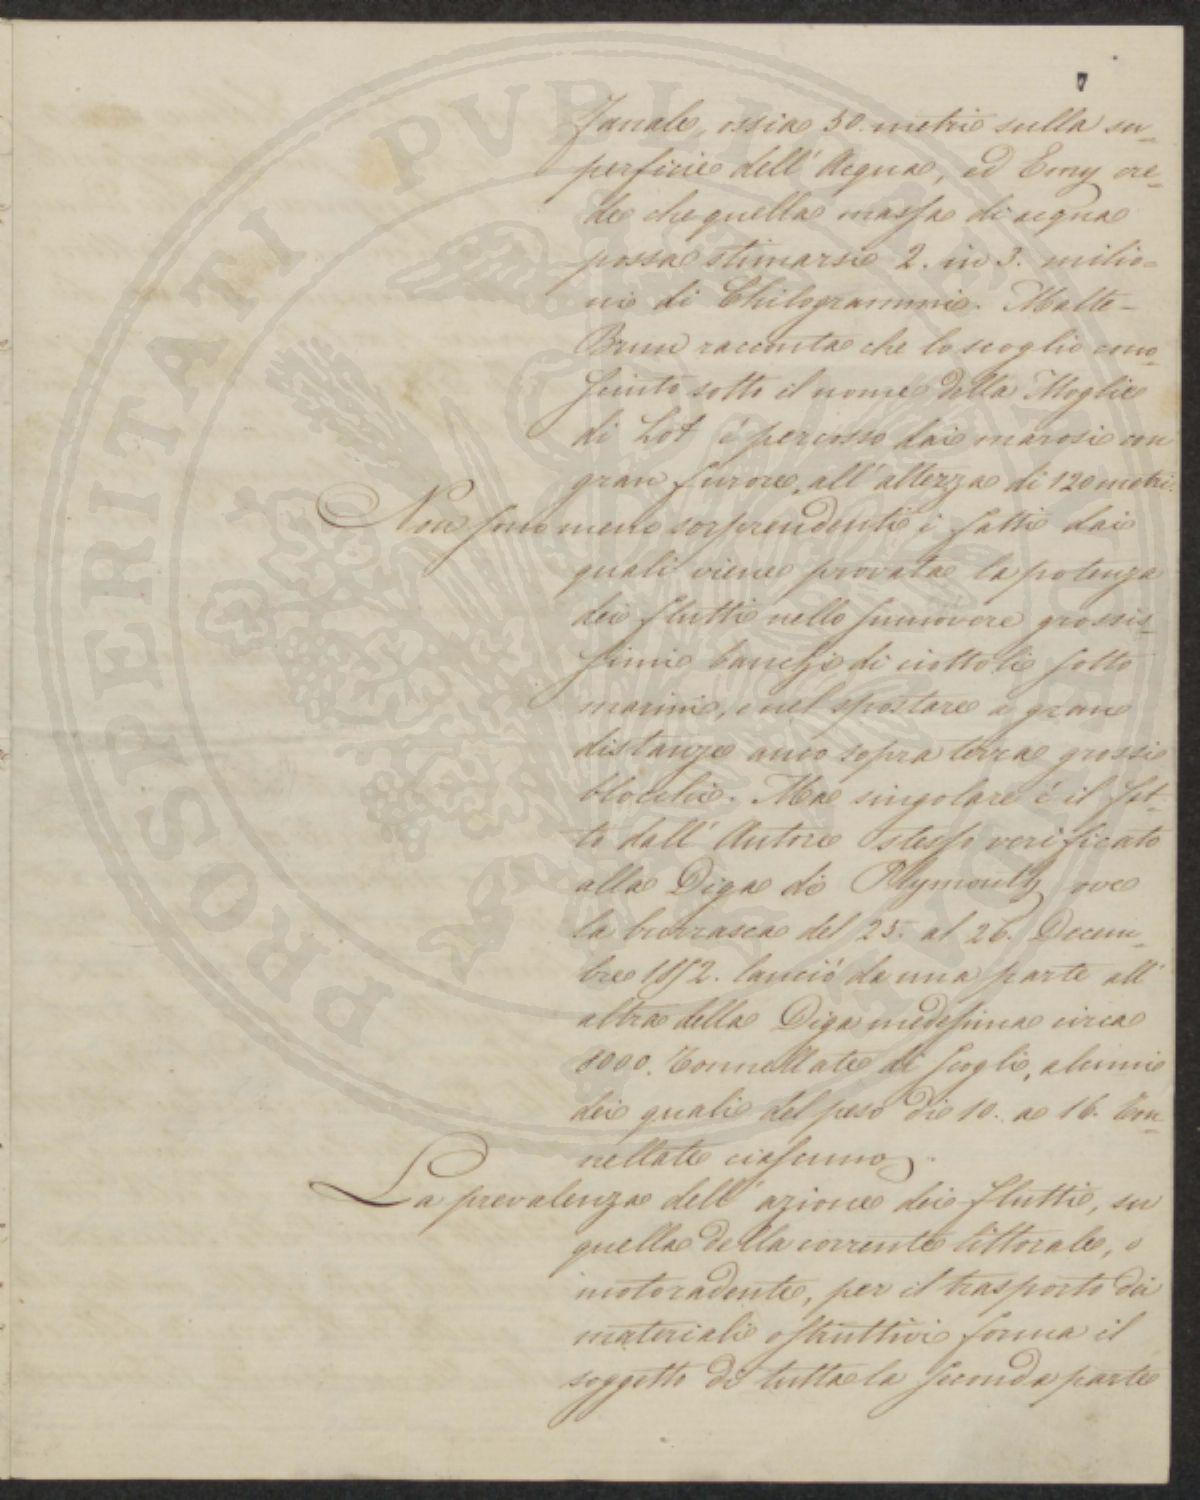 7
Fanale, ossia 50. metri sulla su-
perficie dell' Acqua, ed Emy cre-
de che quella massa di acqua
possa stimarsi 2. in 3. milio-
ni di Chilogrammi. Malte-
Brun racconta che lo scoglio cono-
sciuto sotto il nome della Moglie
di Lot é percosso dai marosi con
gran furore, all' altezza di 120 metri.
Non sono meno sorprendenti i fatti dai
quali viene provata la potenza
dei flutti nello smuovere grossis-
simi banchi di ciottoli sotto
marini, e nel spostare a gran
distanze anco sopra terra grossi
blocchi. Ma singolare é il fat-
to dall' Autore stesso verificato
alla Diga di Plymouth ove
la burrasca del 25. al 26. Decem-
bre 1852. lanció da una parte all'
altra della Diga medesima circa
8000. Tonnellate di scogli, alcuni
dei quali del peso di 10. a 16. Ton-
nellate ciascuno.
La prevalenza dell' azione dei flutti, su
quella della corrente littorale, o
motoradente, per il trasporto dei
materiali ostruttivi forma il
soggetto di tutta la seconda parte
PROSPERITATI PVBLI